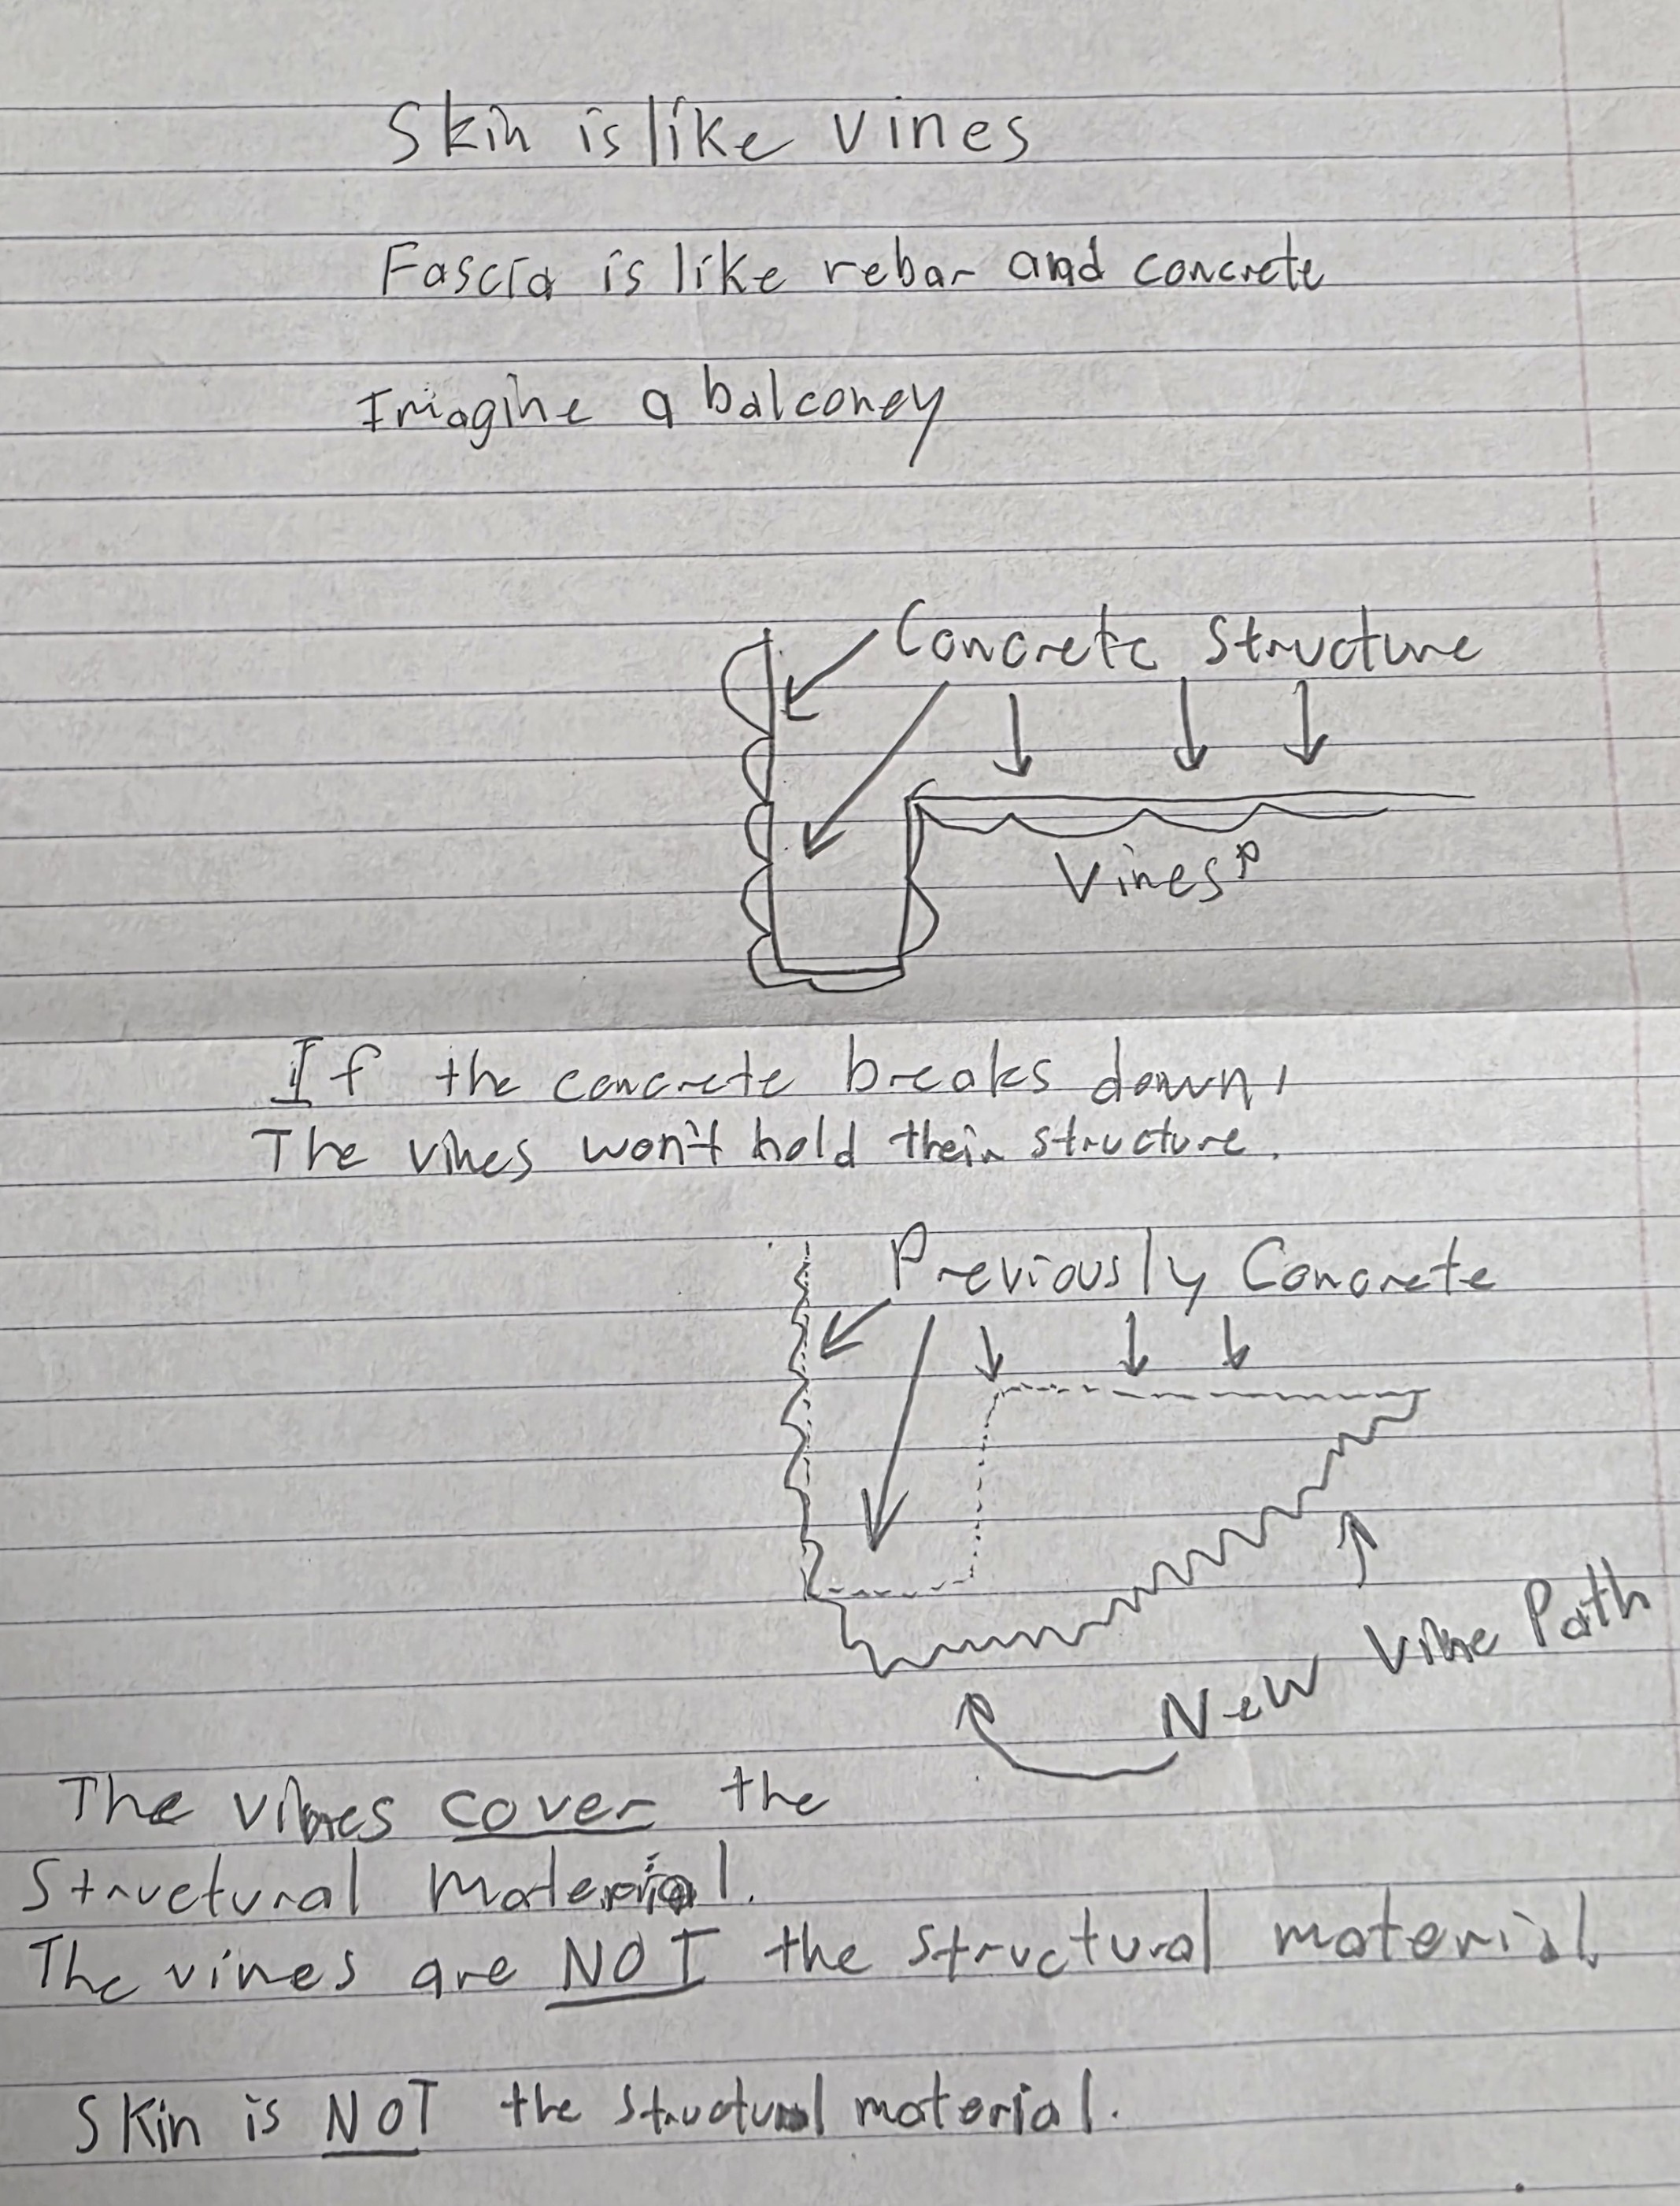 Skin is like vines
Fascia is like rebar and concrete
Imagine a balconey
Concrete Structure
Vines
If the concrete breaks down,
The vines won't hold their structure.
Previously Concrete
New Vine Path
The vines cover the
Structural material.
The vines are NOT the structural material.
Skin is NOT the structural material.